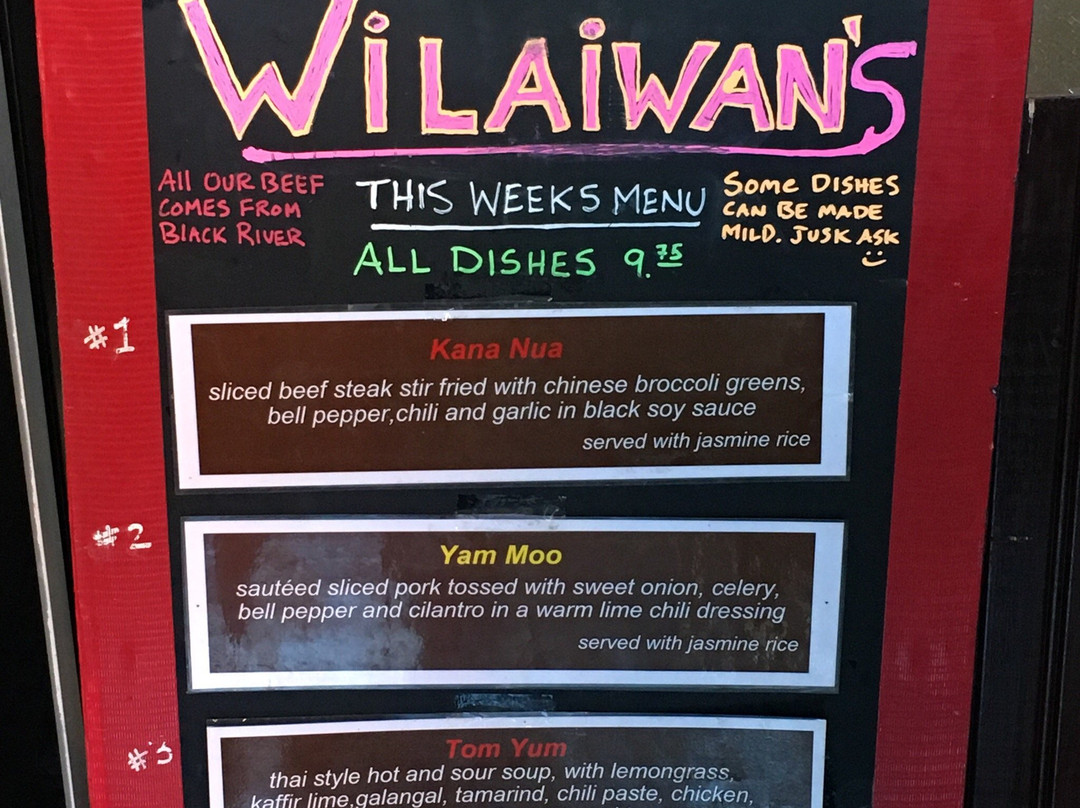 WiLAiWAN'S
All OUR BEEF
COMES FROM
BlACK RIVER
THIS WEEKS MENU
ALL DISHES 9.75
Some DISHES
CAN BE MADE
MILD. JUSK ASK
#1
Kana Nua
sliced beef steak stir fried with chinese broccoli greens,
bell pepper,chili and garlic in black soy sauce
served with jasmine rice
#2
Yam Moo
sautéed sliced pork tossed with sweet onion, celery,
bell pepper and cilantro in a warm lime chili dressing
served with jasmine rice
#3
Tom Yum
thai style hot and sour soup, with lemongrass,
kaffir lime,galangal, tamarind, chili paste, chicken,